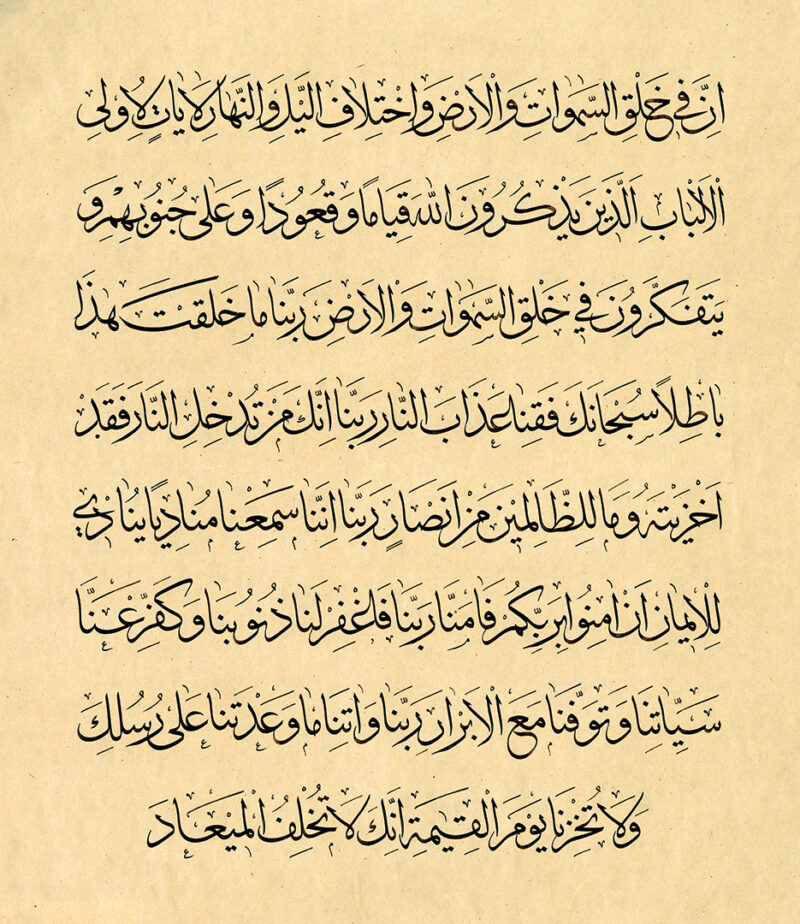 اِنَّ فِي خَلْقِ السَّمٰوَاتِ وَالْاَرْضِ وَاخْتِلَافِ الَّيْلِ وَالنَّهَارِ لَاٰيَاتٍ لِاُولِى
الْاَلْبَابِ اَلَّذِينَ يَذْكُرُونَ اللّٰهَ قِيَامًا وَقُعُودًا وَعَلٰى جُنُوبِهِمْ وَ
يَتَفَكَّرُونَ فِي خَلْقِ السَّمٰوَاتِ وَالْاَرْضِ رَبَّنَا مَا خَلَقْتَ هٰذَا
بَاطِلًا سُبْحَانَكَ فَقِنَا عَذَابَ النَّارِ رَبَّنَا اِنَّكَ مَنْ تُدْخِلِ النَّارَ فَقَدْ
اَخْزَيْتَهُ وَمَا لِلظَّالِمِينَ مِنْ اَنْصَارٍ رَبَّنَا اِنَّنَا سَمِعْنَا مُنَادِيًا يُنَادِي
لِلْاِيمَانِ اَنْ اٰمِنُوا بِرَبِّكُمْ فَاٰمَنَّا رَبَّنَا فَاغْفِرْ لَنَا ذُنُوبَنَا وَكَفِّرْ عَنَّا
سَيِّاٰتِنَا وَتَوَفَّنَا مَعَ الْاَبْرَارِ رَبَّنَا وَاٰتِنَا مَا وَعَدْتَنَا عَلٰى رُسُلِكَ
وَلَا تُخْزِنَا يَوْمَ الْقِيٰمَةِ اِنَّكَ لَا تُخْلِفُ الْمِيعَادَ